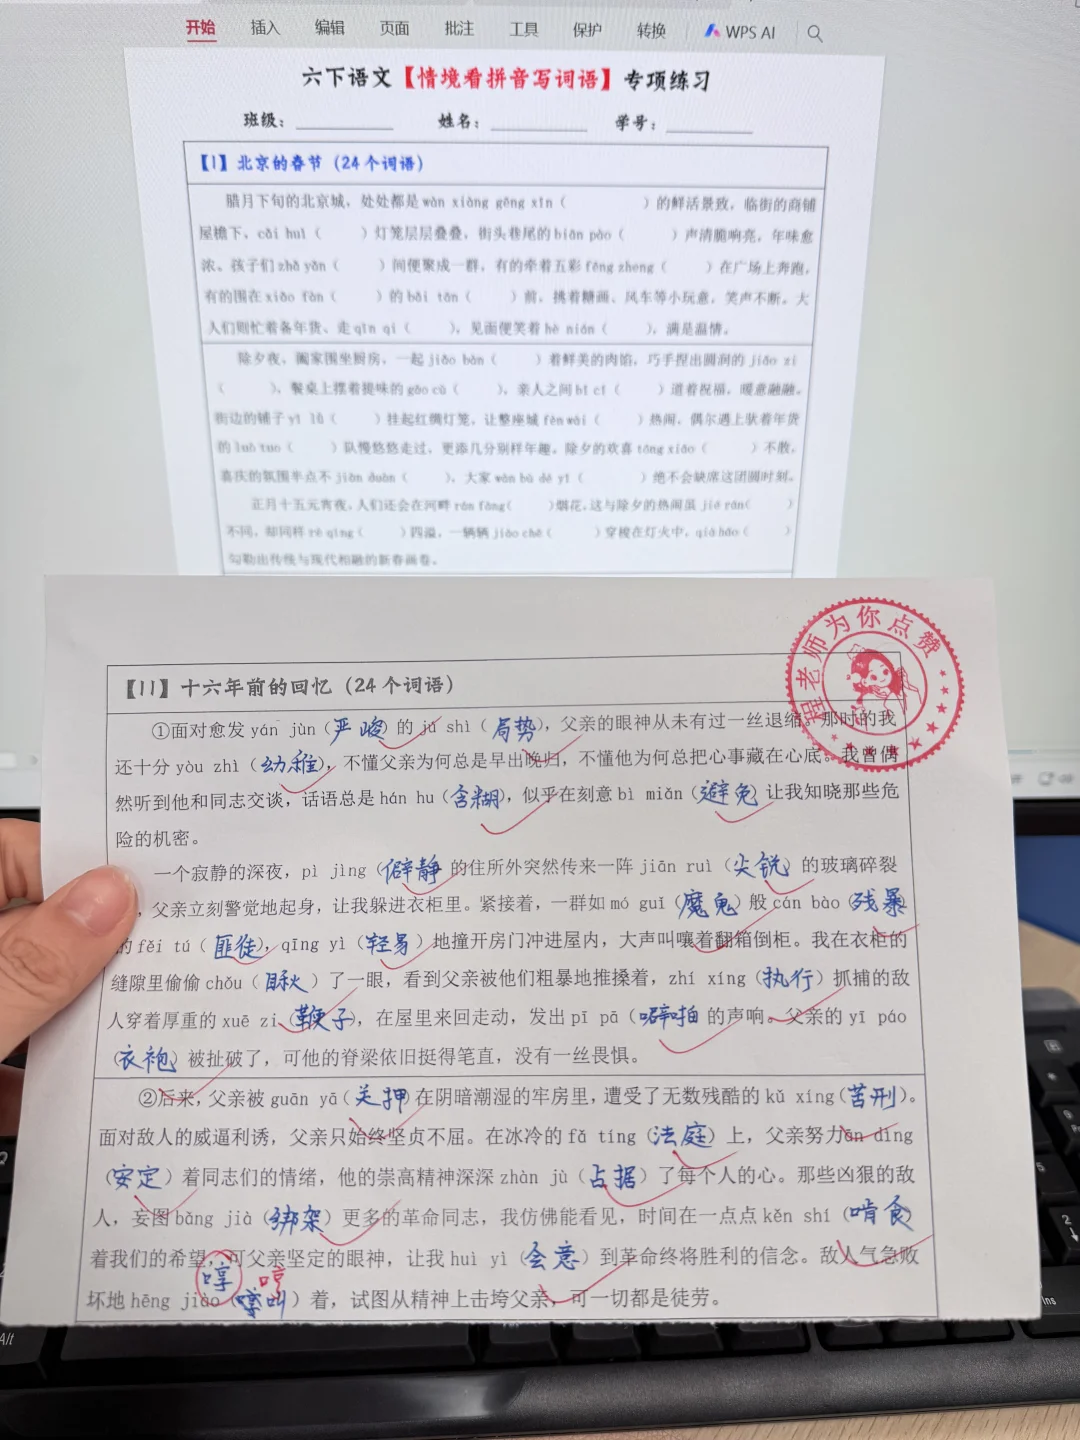 开始 插入 编辑 页面 批注 工具 保护 转换 WPS AI
六下语文【情境看拼音写词语】专项练习
班级：________ 姓名：________ 学号：________
【1】北京的春节（24个词语）
腊月下旬的北京城，处处都是wàn xiàng gēng xīn（ ）的鲜活景致，临街的商铺
屋檐下，cǎi huì（ ）灯笼层层叠叠，街头巷尾的biān pào（ ）声清脆响亮，年味愈
浓。孩子们zhǎ yǎn（ ）间便聚成一群，有的牵着五彩fēng zheng（ ）在广场上奔跑，
有的围在xiǎo fàn（ ）的bǎi tān（ ）前，挑着糖画、风车等小玩意，笑声不断。大
人们则忙着备年货、走qīn qi（ ），见面便笑着hè nián（ ），满是温情。
除夕夜，阖家围坐厨房，一起jiǎo bàn（ ）着鲜美的肉馅，巧手捏出圆润的jiǎo zi
（ ），餐桌上摆着提味的gāo cù（ ），亲人之间bǐ cǐ（ ）道着祝福，暖意融融。
街边的铺子yī lǜ（ ）挂起红绸灯笼，让整座城fèn wài（ ）热闹，偶尔遇上驮着年货
的luò tuo（ ）队慢悠悠走过，更添几分别样年趣。除夕的欢喜tōng xiāo（ ）不散，
喜庆的氛围半点不jiàn duàn（ ），大家wàn bù dé yǐ（ ）绝不会缺席这团圆时刻。
正月十五元宵夜，人们还会在河畔rán fàng（ ）烟花，这与除夕的热闹虽jié rán（ ）
不同，却同样rè qíng（ ）四溢，一辆辆jiào chē（ ）穿梭在灯火中，qià hǎo（ ）
勾勒出传统与现代相融的新春画卷。
程老师为你点赞
【11】十六年前的回忆（24个词语）
①面对愈发 yán jùn（严峻）的 jú shì（局势），父亲的眼神从未有过一丝退缩。那时的我
还十分 yòu zhì（幼稚），不懂父亲为何总是早出晚归，不懂他为何总把心事藏在心底。我曾偶
然听到他和同志交谈，话语总是 hán hu（含糊），似乎在刻意 bì miǎn（避免 让我知晓那些危
险的机密。
一个寂静的深夜，pì jìng（僻静 的住所外突然传来一阵 jiān ruì（尖锐）的玻璃碎裂
，父亲立刻警觉地起身，让我躲进衣柜里。紧接着，一群如 mó guǐ（魔鬼）般 cán bào（残暴）
的 fěi tú（匪徒），qīng yì（轻易）地撞开房门冲进屋内，大声叫嚷着翻箱倒柜。我在衣柜的
缝隙里偷偷 chǒu（瞅）了一眼，看到父亲被他们粗暴地推搡着，zhí xíng（执行）抓捕的敌
人穿着厚重的 xuē zi（鞭子），在屋里来回走动，发出 pī pā（噼啪 的声响。父亲的 yī páo
（衣袍）被扯破了，可他的脊梁依旧挺得笔直，没有一丝畏惧。
②后来，父亲被 guān yā（关押）在阴暗潮湿的牢房里，遭受了无数残酷的 kǔ xíng（苦刑）。
面对敌人的威逼利诱，父亲只始终坚贞不屈。在冰冷的 fǎ tíng（法庭）上，父亲努力 ān dìng
（安定）着同志们的情绪，他的崇高精神深深 zhàn jù（占据）了每个人的心。那些凶狠的敌
人，妄图 bǎng jià（绑架）更多的革命同志，我仿佛能看见，时间在一点点 kěn shí（啃食）
着我们的希望，可父亲坚定的眼神，让我 huì yì（会意）到革命终将胜利的信念。敌人气急败
哼 哼
坏地 hēng jiào（嚎叫）着，试图从精神上击垮父亲，可一切都是徒劳。